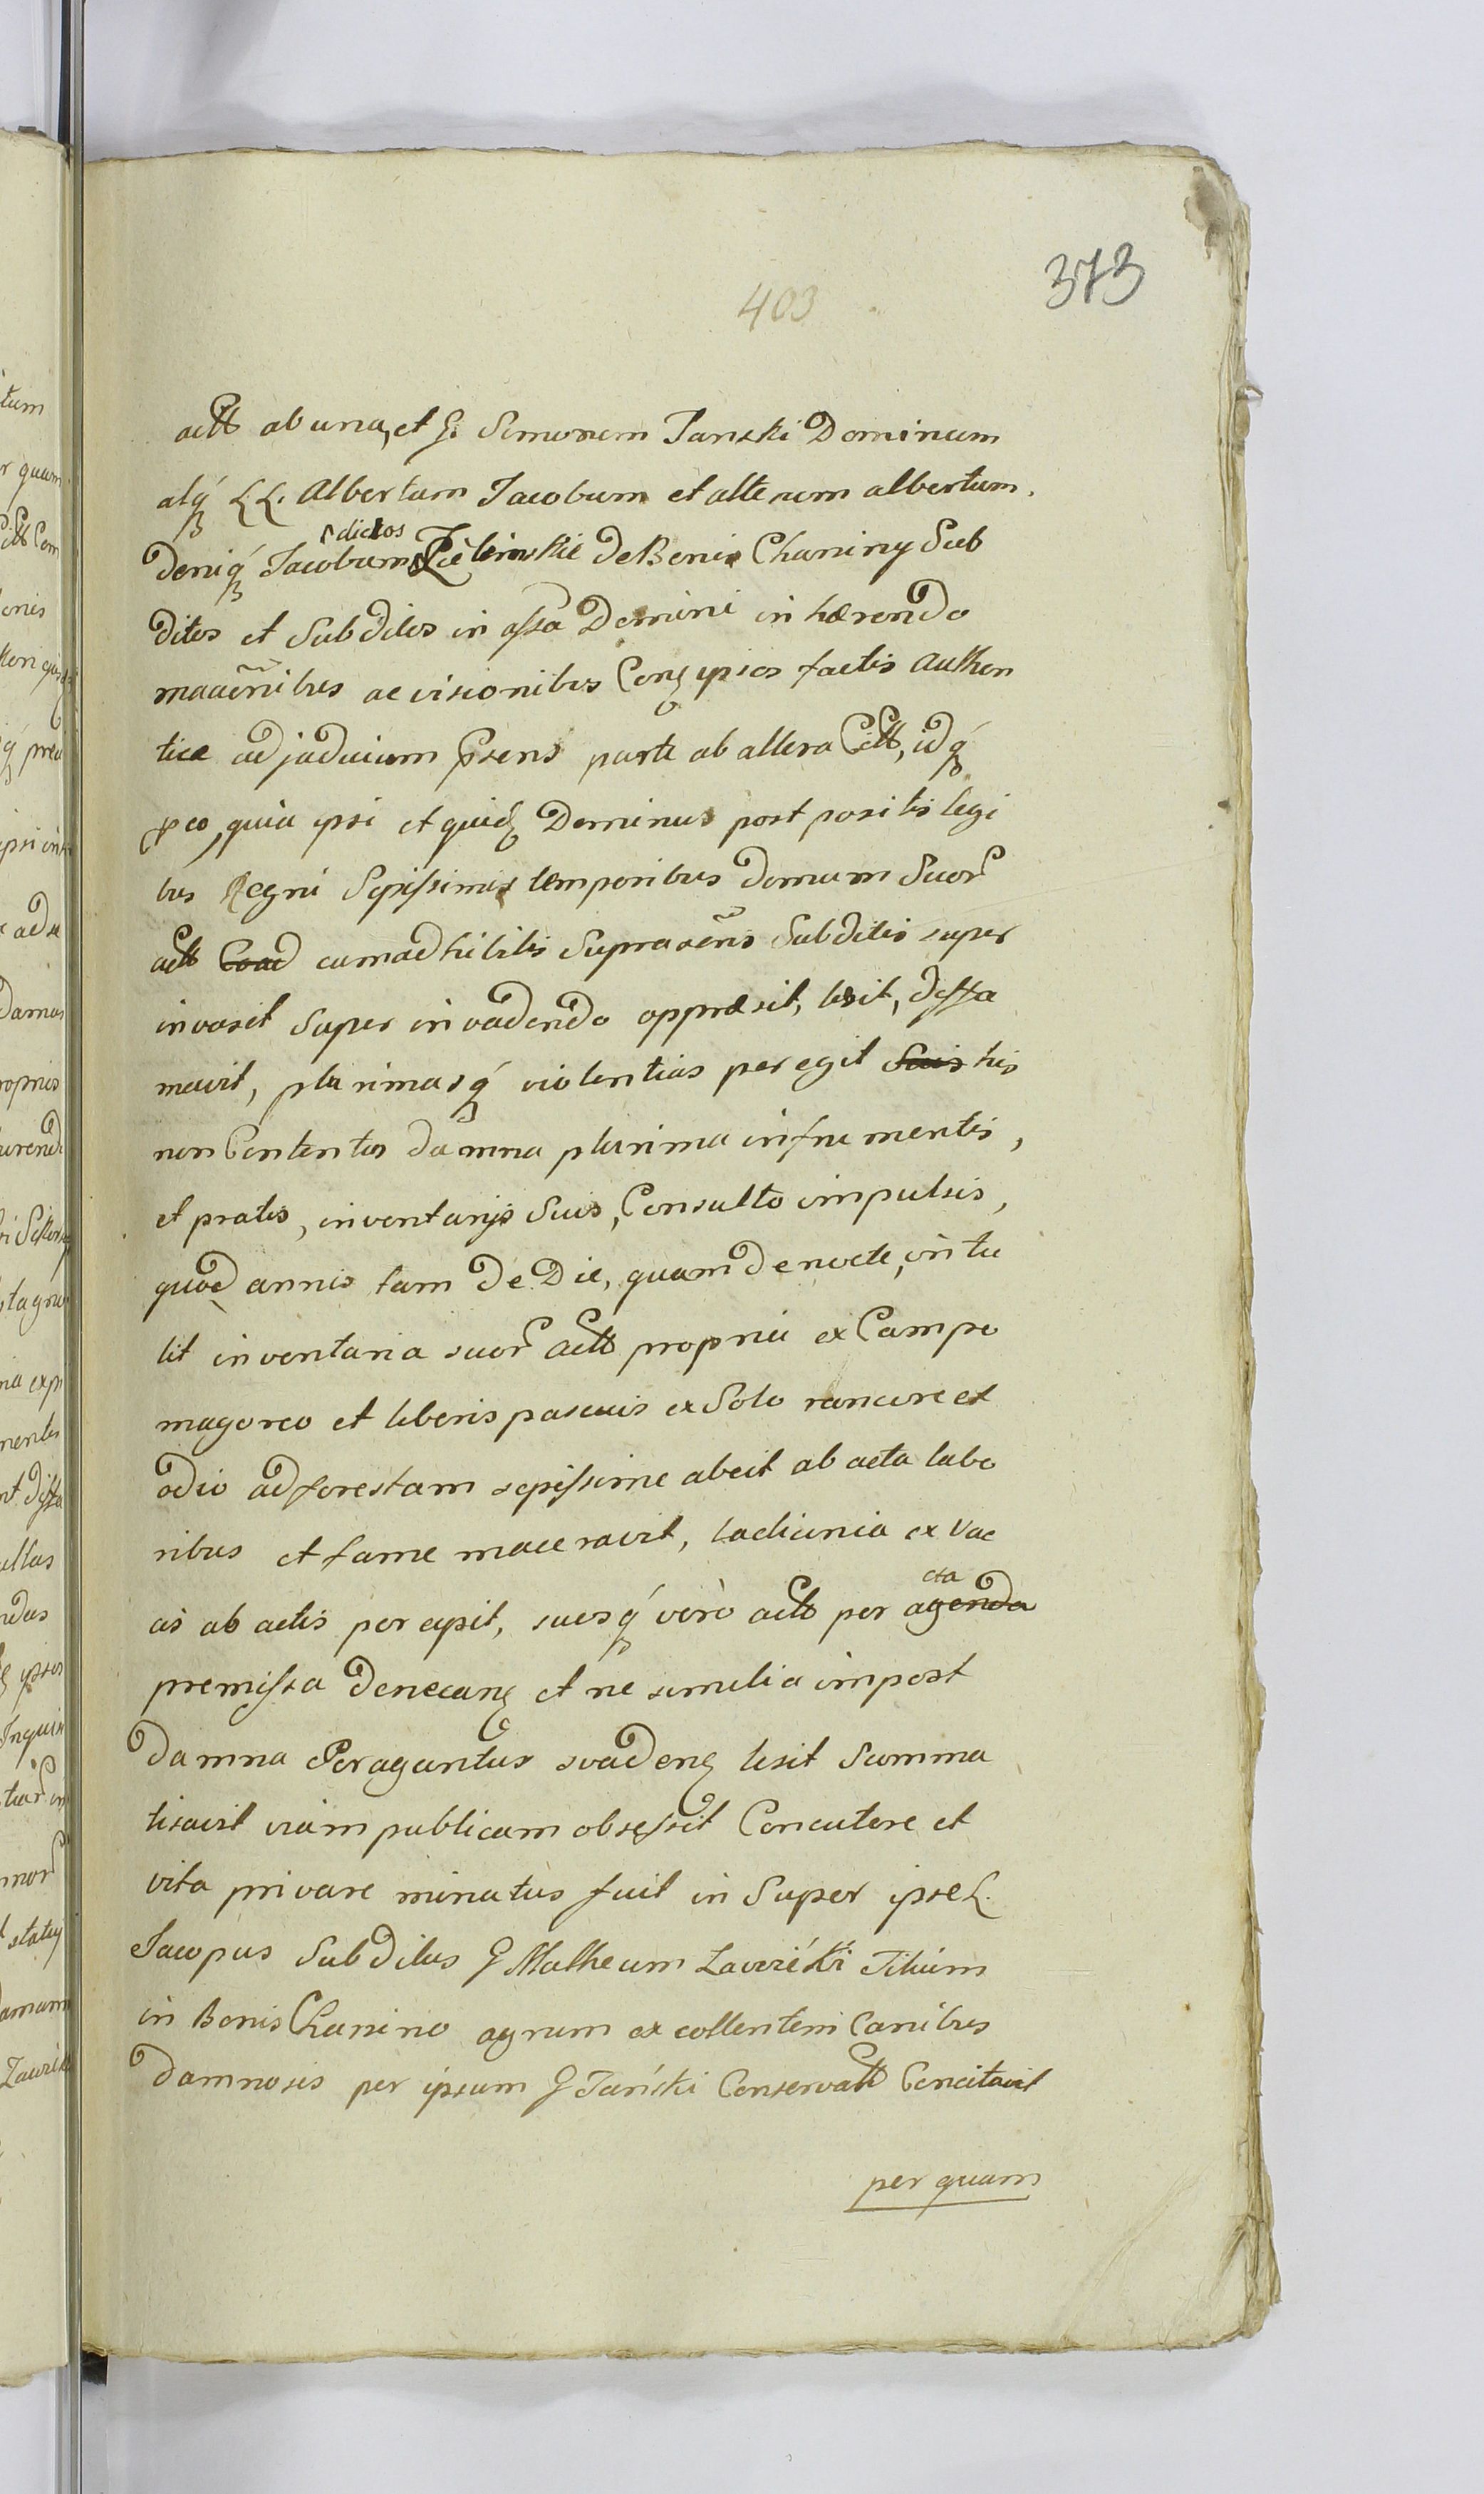 403
373
actt ab una, et G. Simonem Tanski Dominum
atq́ LL. Albertum Jacobum et alterum albertum.
Deniq́ Jacobum dictos Zielinskie De Bonis Chaniny Sub
ditos et Subditos in assa Domini in hærendo
maãonibus ac visionibus Conq ipsos factis Authen
tice ad judicium Psens parte ab altera Citt, id q́
p eo, quia ipsi et quidq Dominus post positis legi
bus Regni Sepissimis temporibus domum Suor
actt Coad cum adhibitis Supra oẽns Subditis super
invasit Super invadendo oppræsit, lesit, diffa
mavit, plurimasq́ violentias per egit Suis his
non Contentus damna plurima in frumentis,
et pratis, inventarijs Suis, Consulto impulsis,
quod annis tam De Die, quam de nocte, intu
lit inventaria suor actt propria ex Campo
magoreo et liberis pascuis ex Solo rancore et
odio ad forestam sepissime abeit ab acta labo
ribus et fame maceravit, lacticinia ex Vac
cis ab actis per cepit, suosq́ verò actt per acta agenda
premissa Denecanq et ne similia impost
damna Peragantur svadenq lesit Summa
tisavit viam publicam obsessit Concutere et
vita privare minatus fuit in Super ipse L.
Jacopus Subditus G Matheum Zawiéski Titium
in Bonis Chanino agrum ex collentem Canibus
damnosis per ipsum G Tański Conservatt Concitavit
per quam